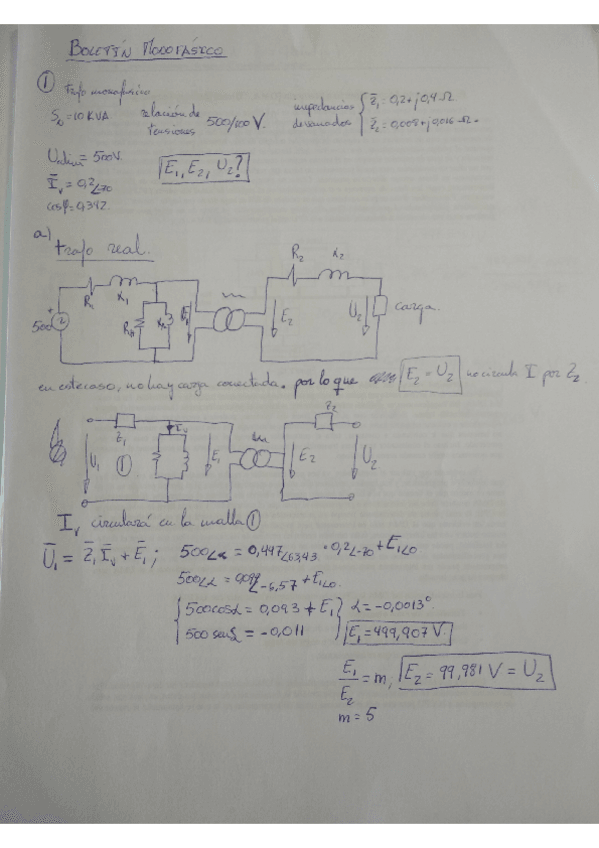 BOLETÍN MONOFÁSICO
① trafo monofásico
Sₙ = 10 KVA relación de tensiones 500/100 V. impedancias devanados { Z̄₁ = 0,2 + j0,4 Ω.
Z̄₂ = 0,008 + j0,016 Ω.
Ualim = 500V.
Īᵥ = 0,2∠70
cosφ = 0,342.
E₁, E₂, U₂?
a) trafo real.
R₁ X₁ R₂ X₂
500 E₂ U₂ carga.
en este caso, no hay carga conectada. por lo que E₂ = U₂ no circula I por Z₂.
Z₁ Iᵥ Z₂
U₁ ① E₁ m E₂ U₂
Iᵥ circulará en la malla ①
Ū₁ = Z̄₁Īᵥ + Ē₁; 500∠α = 0,447∠63,43 · 0,2∠-70 + E₁∠0
500∠α = 0,09∠-6,57 + E₁∠0.
500cosα = 0,093 + E₁ } α = -0,0013°
500 senα = -0,011 E₁ = 499,907 V.
E₁/E₂ = m, E₂ = 99,981 V = U₂
m = 5